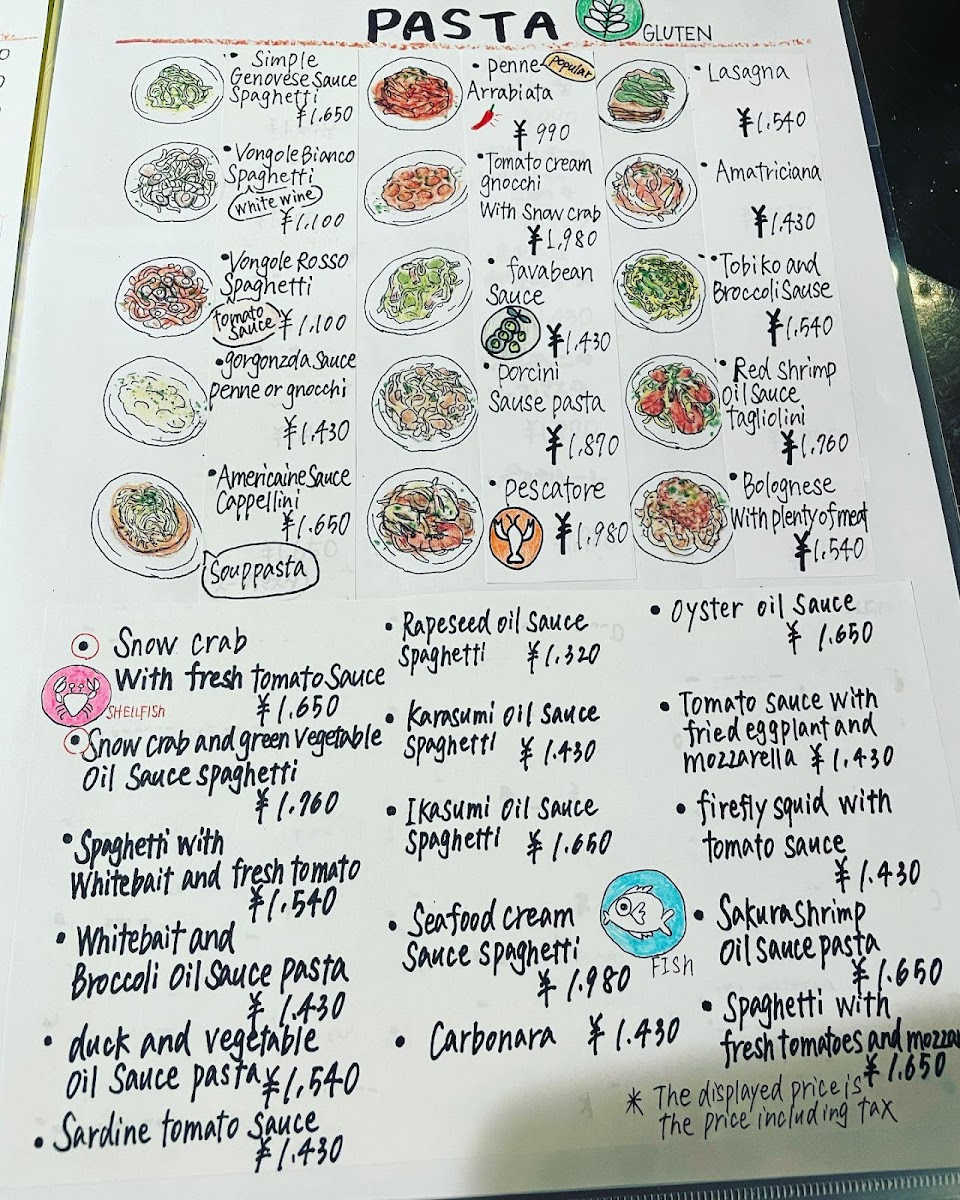 PASTA
GLUTEN
• Simple
Genovese Sauce
Spaghetti
¥1.650
• Vongole Bianco
Spaghetti
White wine
¥1,100
• Vongole Rosso
Spaghetti
tomato
Sauce
¥1,100
• gorgonzola Sauce
penne or gnocchi
¥1.430
• Americaine Sauce
Cappellini
¥1.650
Soup pasta
• penne
popular
Arrabiata
¥990
• Tomato cream
gnocchi
With Snow crab
¥1,980
• favabean
Sauce
¥1.430
• porcini
Sause pasta
¥1,870
• pescatore
¥1,980
• Lasagna
¥1.540
• Amatriciana
¥1.430
• Tobiko and
Broccoli Sause
¥1.540
• Red shrimp
oil Sauce
tagliolini
¥1,760
• Bolognese
With plenty of meat
¥1.540
• Snow crab
With fresh tomato Sauce
SHELLFISH
¥1.650
• Snow crab and green vegetable
Oil Sauce spaghetti
¥1.760
• Spaghetti with
Whitebait and fresh tomato
¥1.540
• Whitebait and
Broccoli Oil Sauce pasta
¥1.430
• duck and vegetable
Oil Sauce pasta ¥1,540
• Sardine tomato Sauce
¥1.430
• Rapeseed oil Sauce
Spaghetti ¥1.320
• Karasumi Oil Sauce
Spaghetti ¥1.430
• Ikasumi Oil Sauce
Spaghetti ¥1.650
• Seafood cream
Sauce spaghetti
FISH
¥1.980
• Carbonara ¥1.430
• Oyster oil Sauce
¥1.650
• Tomato sauce with
fried eggplant and
mozzarella ¥1.430
• firefly squid with
tomato sauce
¥1.430
• Sakura Shrimp
Oil Sauce pasta
¥1.650
• Spaghetti with
fresh tomatoes and mozzar
¥1.650
* The displayed price is
the price including tax